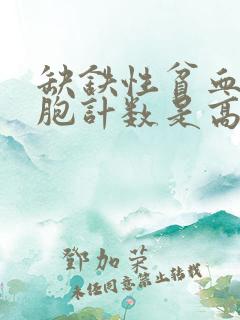 缺鉄性貧血
胞計数是高
鄧加荣
未经同意禁止转载